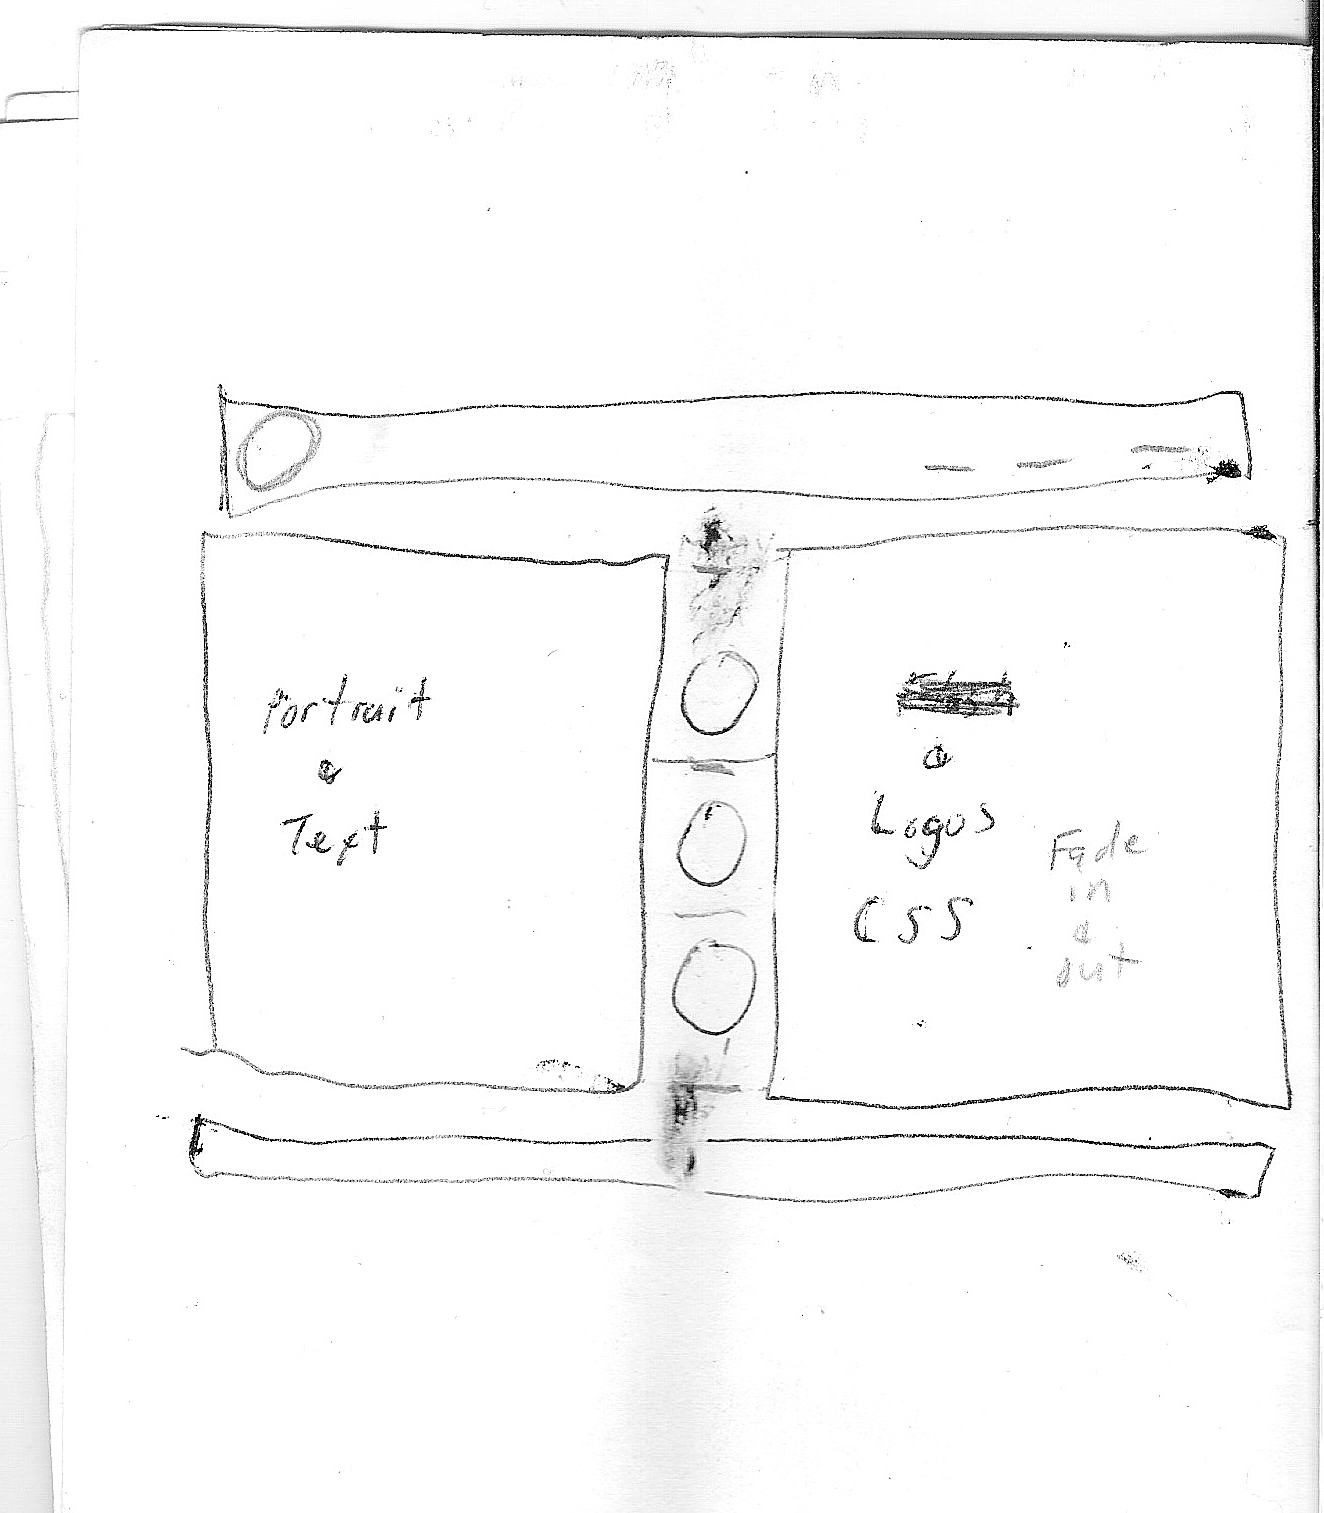 Portrait
&
Text
&
Logos
CSS
Fade
in
&
out